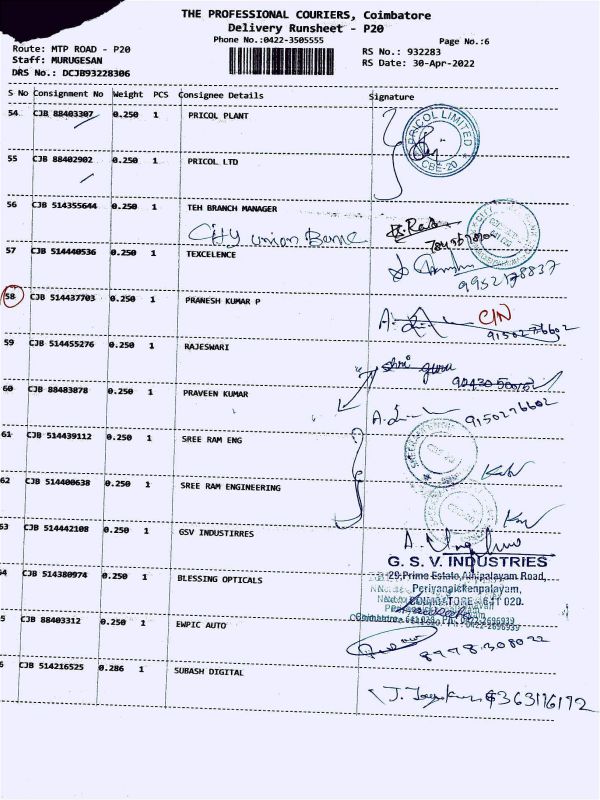 THE PROFESSIONAL COURIERS, Coimbatore
Delivery Runsheet - P20
Phone No.:0422-3505555
Page No.:6
Route: MTP ROAD - P20
Staff: MURUGESAN
DRS No.: DCJB93228306
RS No.: 932283
RS Date: 30-Apr-2022
S No Consignment No Weight PCS Consignee Details Signature
54 CJB 88403307 0.250 1 PRICOL PLANT
PRICOL LIMITED
CBE-20
55 CJB 88402902 0.250 1 PRICOL LTD
56 CJB 514355644 0.250 1 TEH BRANCH MANAGER
City union Bank
57 CJB 514440536 0.250 1 TEXCELENCE
9952178837
58 CJB 514437703 0.250 1 PRANESH KUMAR P
C/N
9150276602
59 CJB 514455276 0.250 1 RAJESWARI
shri guru
60 CJB 88483878 0.250 1 PRAVEEN KUMAR
9150276602
61 CJB 514439112 0.250 1 SREE RAM ENG
62 CJB 514400638 0.250 1 SREE RAM ENGINEERING
53 CJB 514442108 0.250 1 GSV INDUSTIRRES
G. S. V. INDUSTRIES
29,Prime Estato,Athipalayam Road,
Periyanaickenpalayam,
COIMBATORE - 641 020.
4 CJB 514380974 0.250 1 BLESSING OPTICALS
5 CJB 88403312 0.250 1 EWPIC AUTO
8998308022
6 CJB 514216525 0.286 1 SUBASH DIGITAL